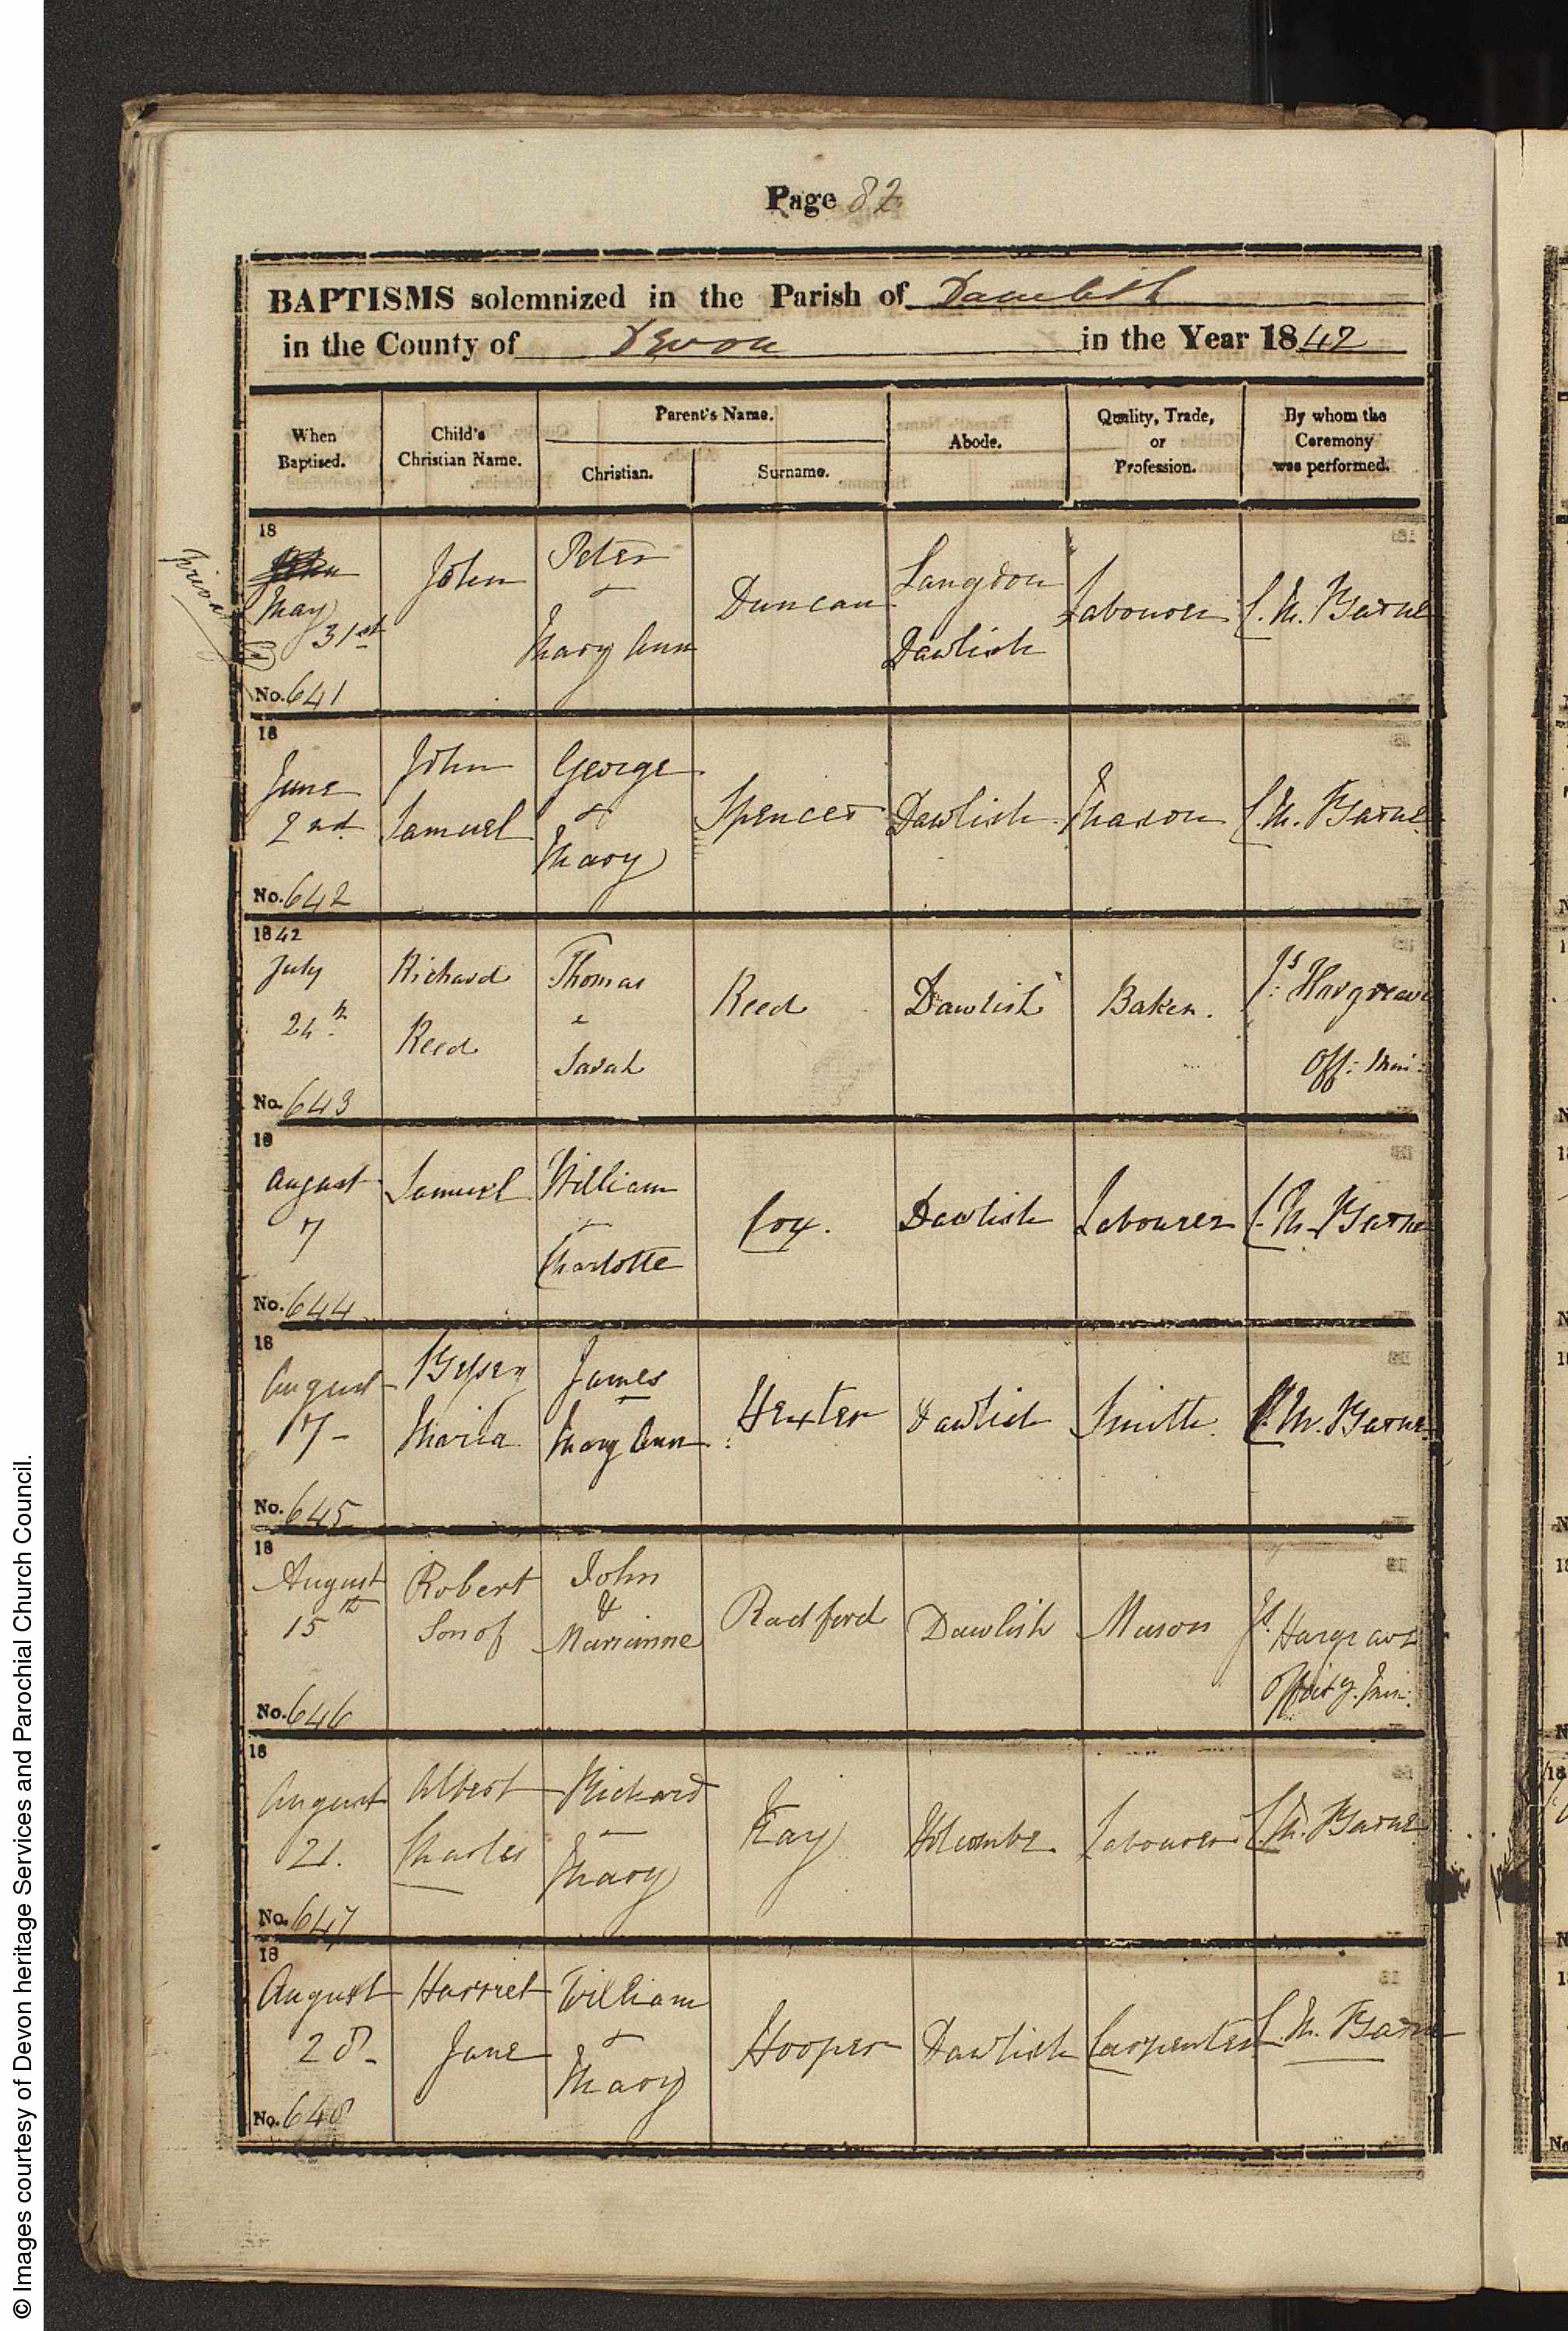 Page 82
BAPTISMS solemnized in the Parish of Dawlish
in the County of Devon in the Year 1842
When Baptised.
Child's Christian Name.
Parent's Name.
Christian.
Surname.
Abode.
Quality, Trade, or Profession.
By whom the Ceremony was performed.
18
May 31st
No. 641
John
Peter
&
Mary Ann
Duncan
Langdon
Dawlish
Labourer
C. M. Barne
18
June
2nd
No. 642
John
Samuel
George
&
Mary
Spencer
Dawlish
Mason
C. M. Barne
1842
July
24th
No. 643
Richard
Reed
Thomas
&
Sarah
Reed
Dawlish
Baker.
Js: Hargreave
Off: Min:
18
August
7
No. 644
Samuel
William
&
Charlotte
Cox.
Dawlish
Labourer
C. M. Barne
18
August
7-
No. 645
Betsey
Maria
James
Mary Ann
Hexter
Dawlish
Smith.
C. M. Barne
18
August
15th
No. 646
Robert
Son of
John
&
Marianne
Radford
Dawlish
Mason
Js. Hargrave
18
August
21.
No. 647
Albert
Charles
Richard
Mary
Kay
Holcombe
Labourer
C. M. Barne
18
August
28-
No. 648
Harriet
Jane
William
&
Mary
Hooper
Dawlish
Carpenter
C. M. Barne
© Images courtesy of Devon heritage Services and Parochial Church Council.